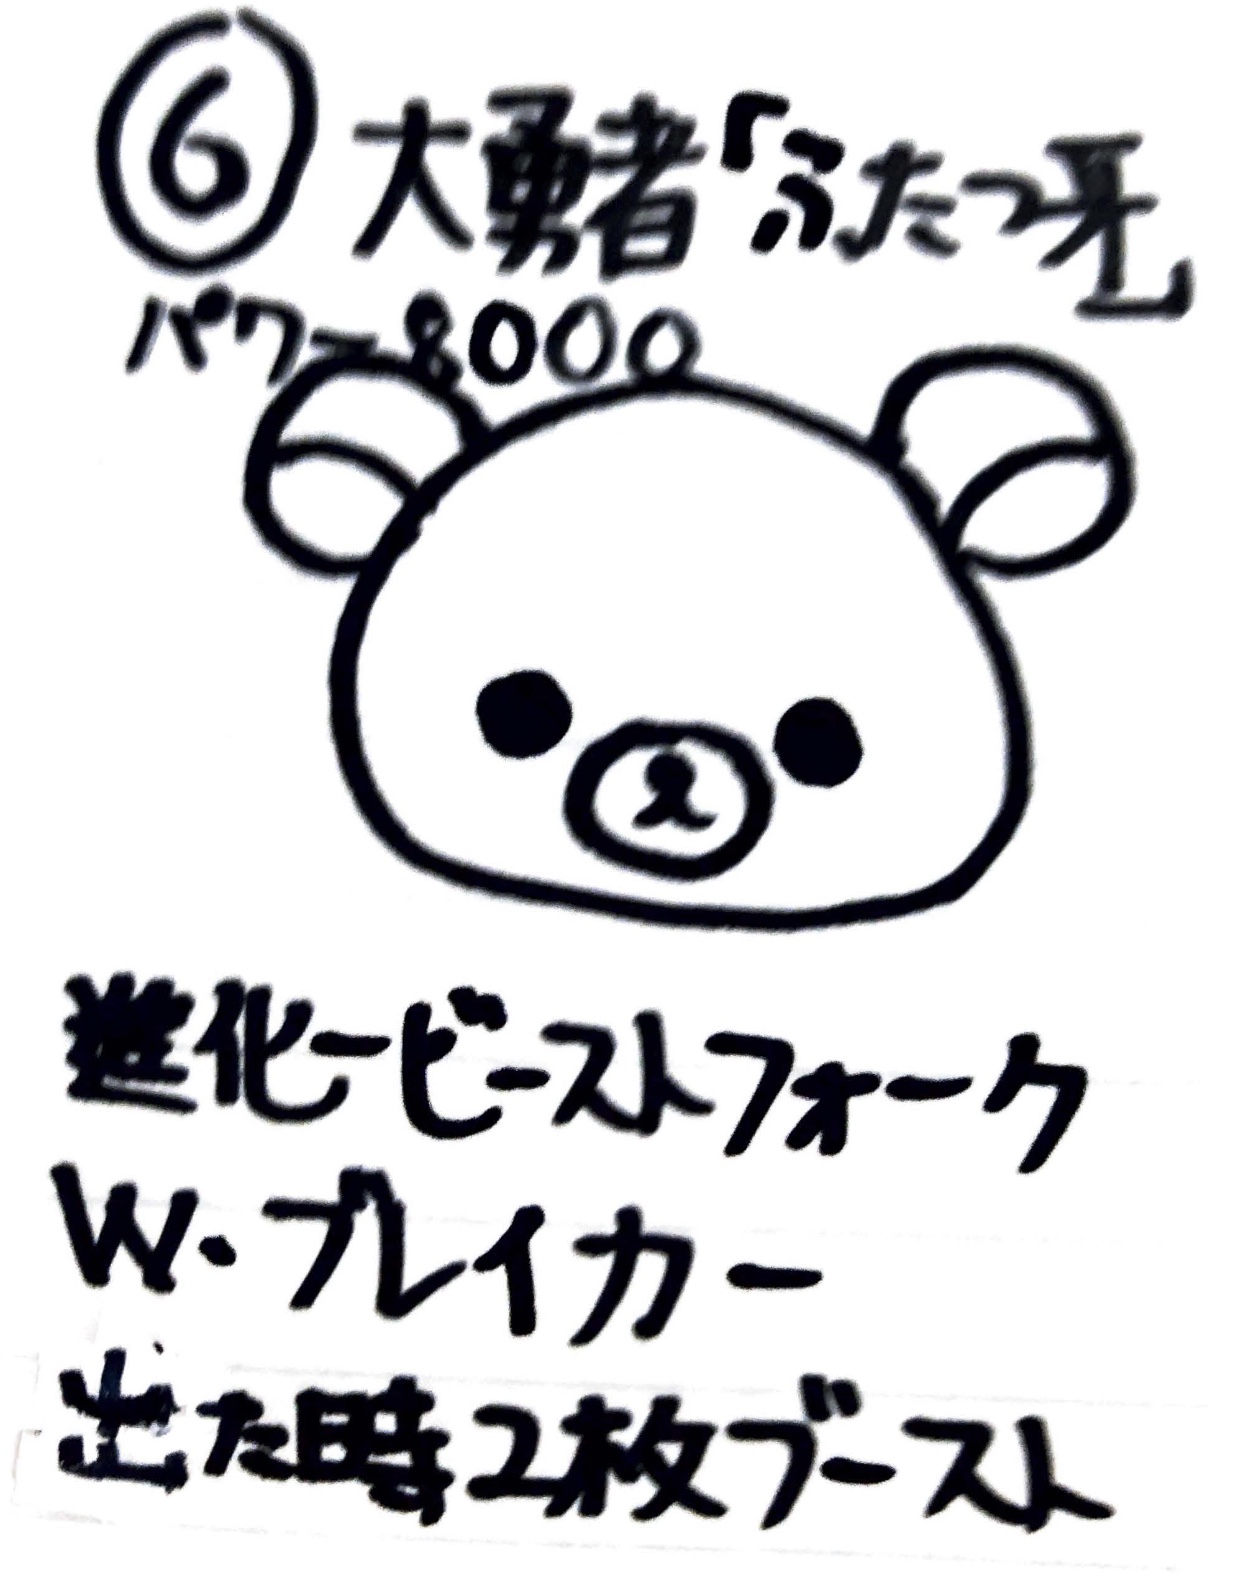 6 大勇者「ふたつ牙」
パワー8000
進化ービーストフォーク
W・ブレイカー
出た時2枚ブースト